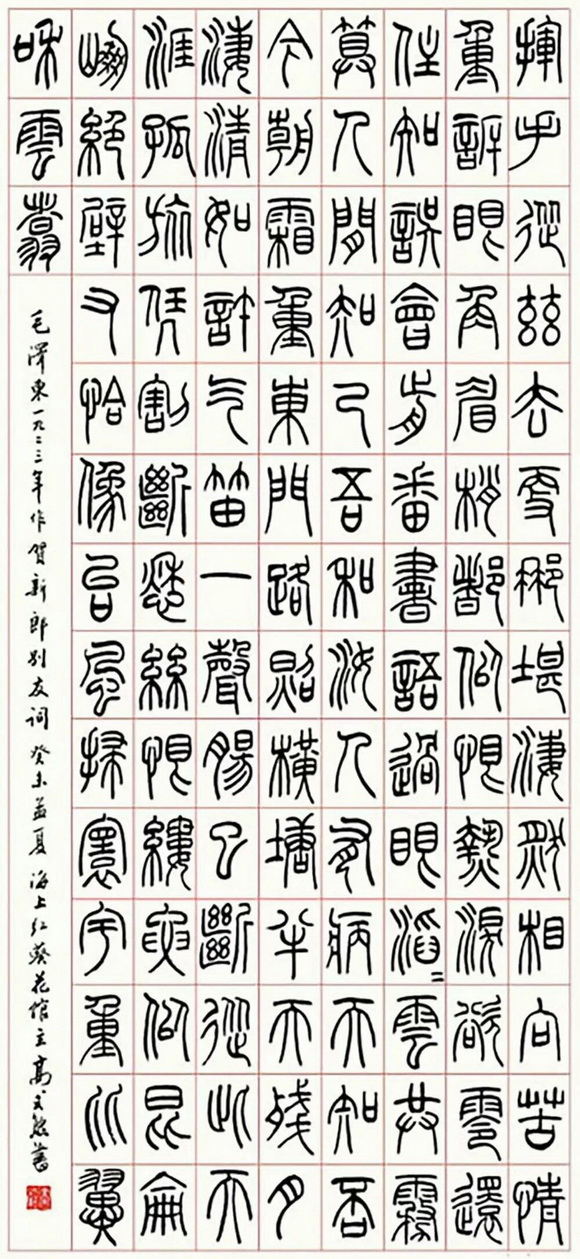 揮手從茲去更那堪淒然相向苦情
重訴眼角眉梢都似恨熱淚欲零還
住知誤會肯番書語過眼滔〻雲共霧
算人間知己吾和汝人有病天知否
今朝霜重東門路照橫塘半天殘月
淒清如許气笛一聲腸已斷從此天
涯孤旅凭割斷愁絲恨縷要似昆侖
崩絕壁又恰像台風掃寰宇重比翼
和雲翥
毛澤東一九二三年作賀新郎别友詞 癸未孟夏 海上紅葵花館主高式熊書